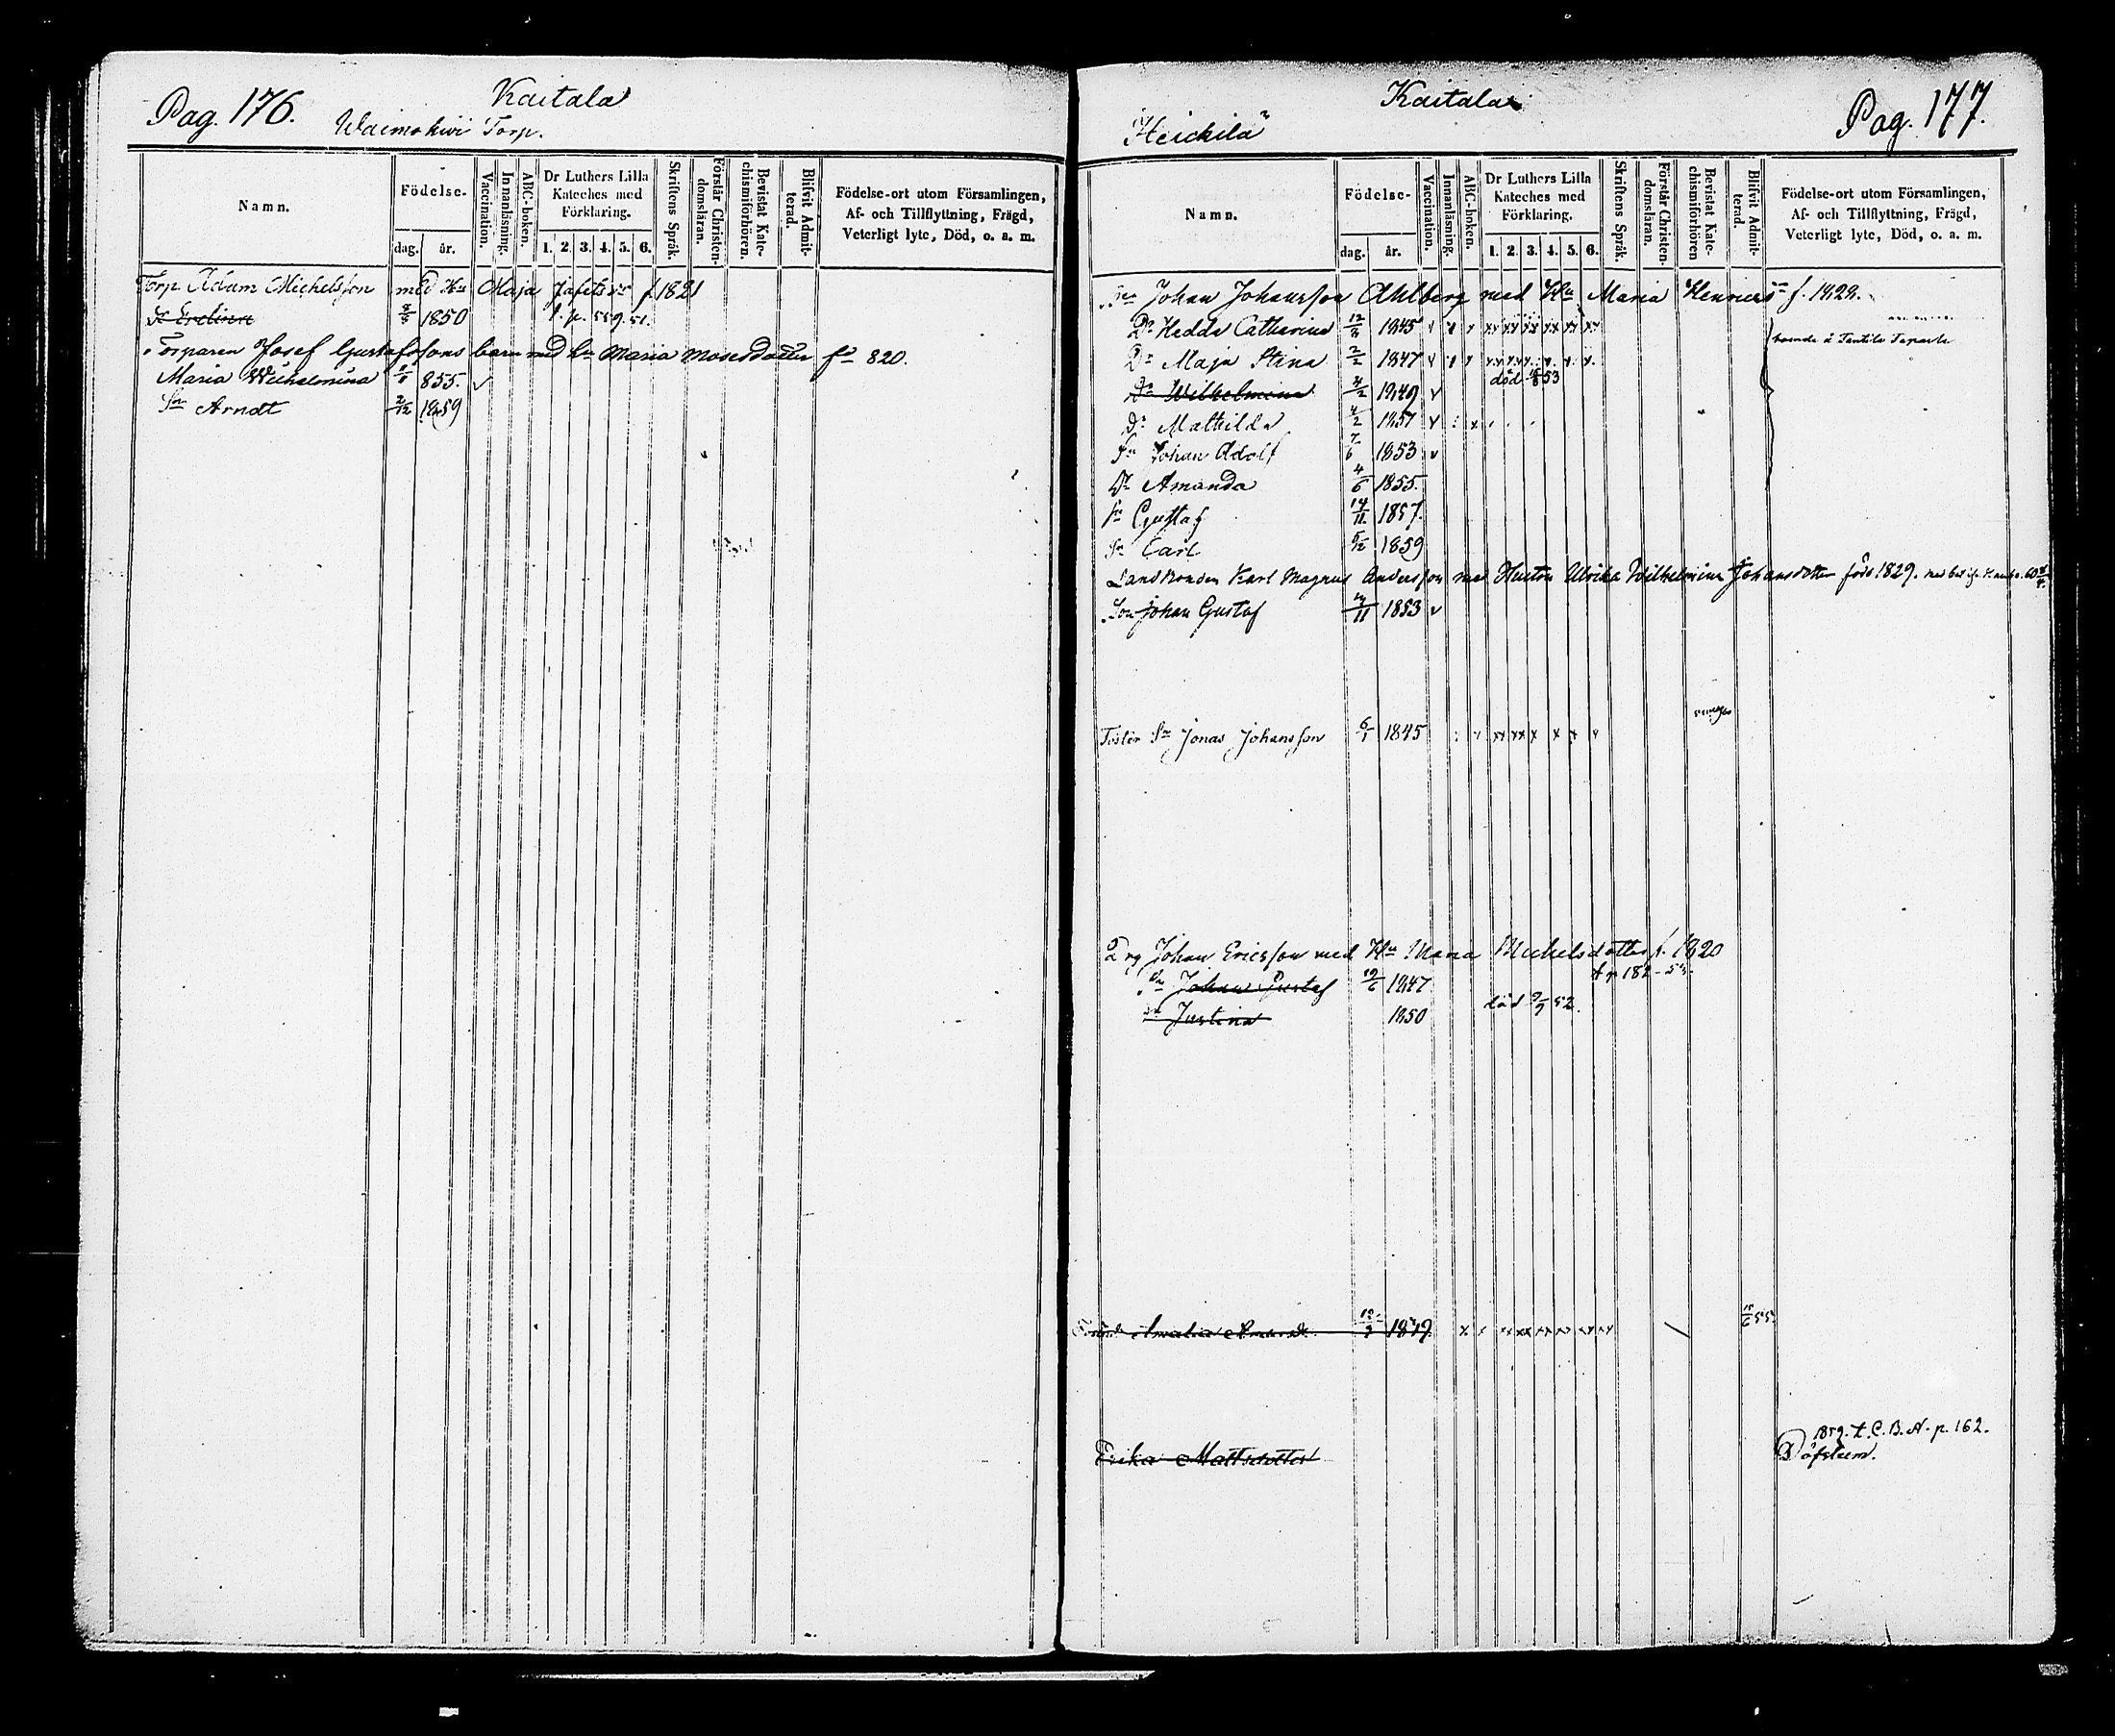 Pag. 176. Kaitala
Waimokivi Torp.
Namn. Födelse- dag. år. Vaccination. Innanläsning. ABC-boken. Dr Luthers Lilla Kateches med Förklaring. 1. 2. 3. 4. 5. 6. Skriftens Språk. Förstår Christendomsläran. Bevistat Katechismiförhören. Blifvit Admitterad. Födelse-ort utom Församlingen, Af- och Tillflyttning, Frägd, Veterligt lyte, Död, o. a. m.
Torp Adam Michelsson med Hu Maja Jafetsdr f. 1821
1850 f. p. 559. 51.
Torparen Josef Gustafssons barn med hu Maria Mosesdotter fd 820.
Maria Wilhelmina 855. v
Sn Arndt 2/12 1859
Kaitala Pag. 177.
Heickilä
Namn. Födelse- dag. år. Vaccination. Innanläsning. ABC-boken. Dr Luthers Lilla Kateches med Förklaring. 1. 2. 3. 4. 5. 6. Skriftens Språk. Förstår Christendomsläran. Bevistat Katechismiförhören Blifvit Admitterad. Födelse-ort utom Församlingen, Af- och Tillflyttning, Frägd, Veterligt lyte, Död, o. a. m.
Johan Johansson Ahlberg med Hu Maria Henricsdr f. 1829.
Dr Hedda Catharina 1845 v x x xx xx xx xx xx xx
Dr Maja Stina 2/2 1847 v x x
död 53
Dr Wilhelmina 4/2 1849 v
Dr Mathilda 4/2 1851 v
Sn Johan Adolf 7/6 1853 v
Dr Amanda 4/6 1855.
Sn Gustaf 14/11 1857.
Sn Carl 5/12 1859
Landbonden Karl Magnus Andersson med Hustru Ulrika Wilhelmina Johansdotter född 1829.
Son Johan Gustaf 11 1853 v
Foster Sn Jonas Johansson 6/1 1845 xx xx x x x
Johan Ericsson med Hu Maria Michelsdotter f. 1820
Sn Johan Gustaf 1847 p 182
Dr Justina 1850 död 52.
Amalia 1849
Erika Mattsdotter
1859. t. C. B. A. p. 162.
Döfstum.